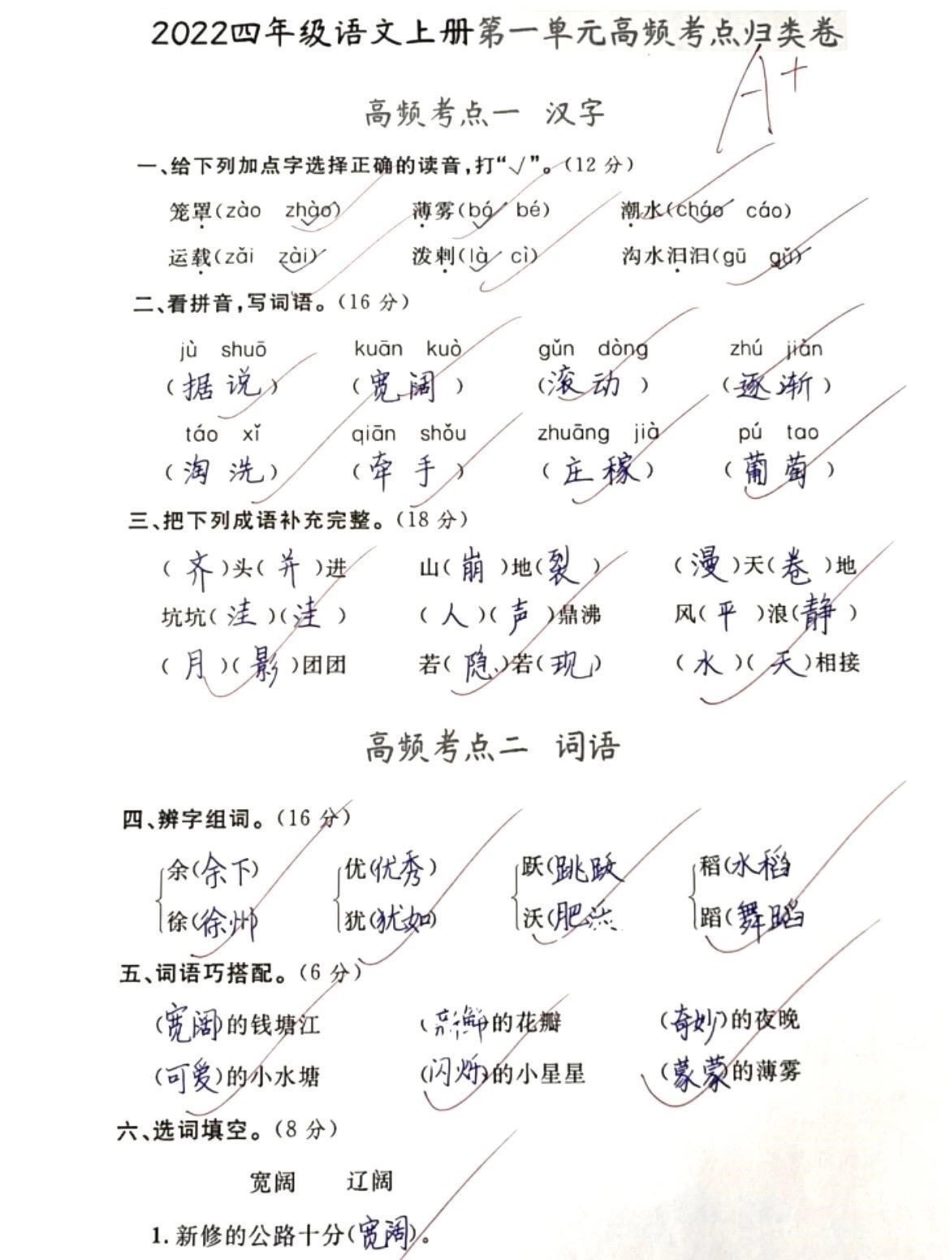 2022四年级语文上册第一单元高频考点归类卷
A+
高频考点一 汉字
一、给下列加点字选择正确的读音,打“√”。(12 分)
笼罩(zào zhào) 薄雾(bó bé) 潮水(cháo cáo)
运载(zǎi zài) 泼剌(là cì) 沟水汩汩(gū gǔ)
二、看拼音,写词语。(16 分)
jù shuō kuān kuò gǔn dòng zhú jiàn
(据说) (宽阔) (滚动) (逐渐)
táo xǐ qiān shǒu zhuāng jià pú tao
(淘洗) (牵手) (庄稼) (葡萄)
三、把下列成语补充完整。(18 分)
(齐)头(并)进 山(崩)地(裂) (漫)天(卷)地
坑坑(洼)(洼) (人)(声)鼎沸 风(平)浪(静)
(月)(影)团团 若(隐)若(现) (水)(天)相接
高频考点二 词语
四、辨字组词。(16 分)
余(余下) 优(优秀) 跃(跳跃) 稻(水稻)
徐(徐州) 犹(犹如) 沃(肥沃) 蹈(舞蹈)
五、词语巧搭配。(6 分)
(宽阔)的钱塘江 (新鲜)的花瓣 (奇妙)的夜晚
(可爱)的小水塘 (闪烁)的小星星 (蒙蒙)的薄雾
六、选词填空。(8 分)
宽阔 辽阔
1. 新修的公路十分(宽阔)。